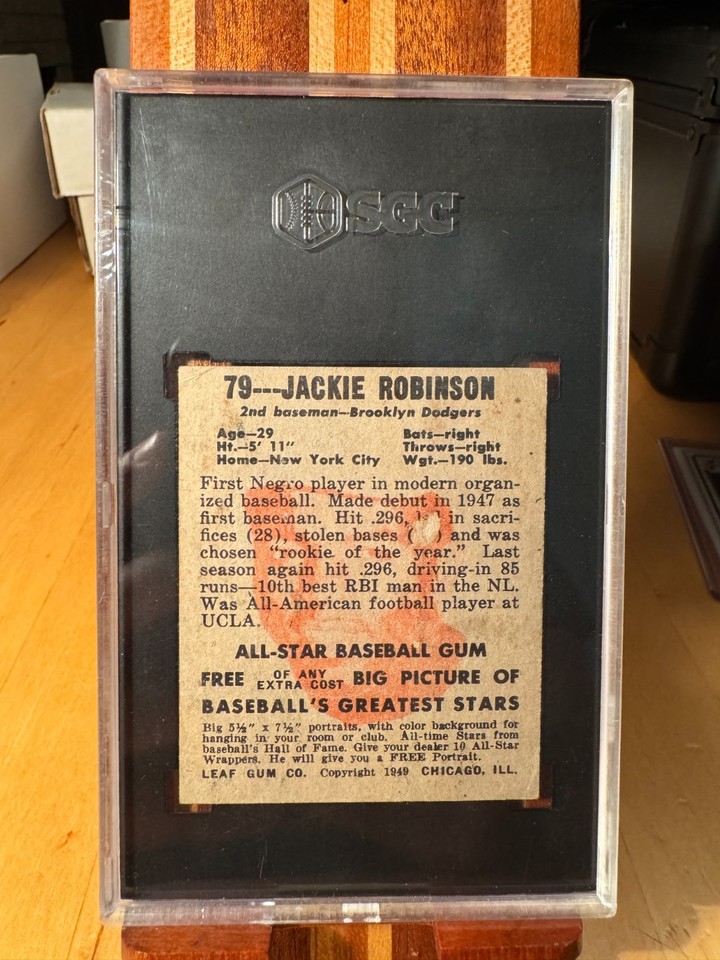 SGC
79---JACKIE ROBINSON
2nd baseman—Brooklyn Dodgers
Age—29 Bats—right
Ht.—5' 11" Throws—right
Home—New York City Wgt.—190 lbs.
First Negro player in modern organ-
ized baseball. Made debut in 1947 as
first baseman. Hit .296, in sacri-
fices (28), stolen bases ( ) and was
chosen "rookie of the year." Last
season again hit .296, driving-in 85
runs—10th best RBI man in the NL.
Was All-American football player at
UCLA.
ALL-STAR BASEBALL GUM
FREE OF ANY EXTRA COST BIG PICTURE OF
BASEBALL'S GREATEST STARS
Big 5½" x 7½" portraits, with color background for
hanging in your room or club. All-time Stars from
baseball's Hall of Fame. Give your dealer 10 All-Star
Wrappers. He will give you a FREE Portrait.
LEAF GUM CO. Copyright 1949 CHICAGO, ILL.